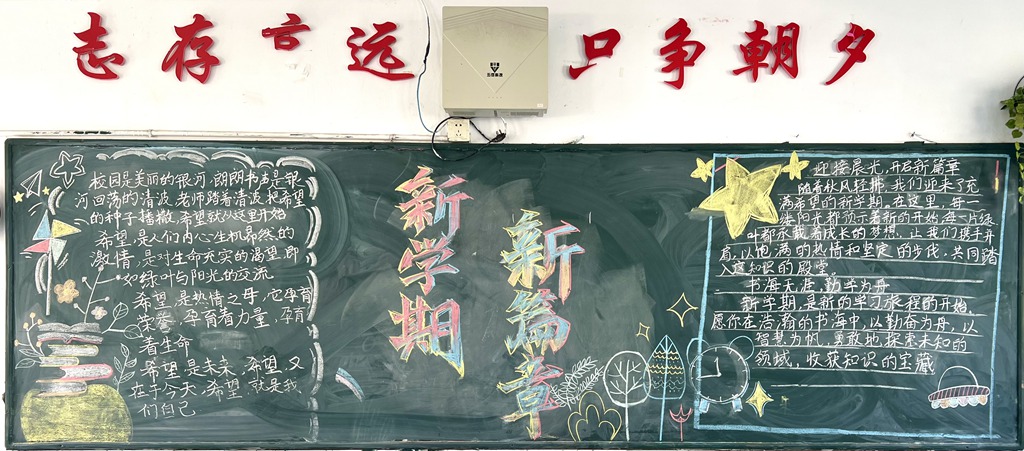 志存高远 只争朝夕
校园是美丽的银河,朗朗书声是银
河回荡的清波,老师踏着清波,把希望
的种子播撒,希望就从这里开始
希望,是人们内心生机昂然的
激情,是对生命充实的渴望,即
如绿叶与阳光的交流
希望,是热情之母,它孕育
荣誉,孕育着力量,孕育
着生命
希望,是未来,希望,又
在于今天,希望,就是我
们自己
新学期
新篇章
迎接晨光,开启新篇章
随着秋风轻拂,我们迎来了充
满希望的新学期。在这里,每一
缕阳光都预示着新的开始,每一片绿
叶都承载着成长的梦想。让我们携手并
肩,以饱满的热情和坚定的步伐,共同踏
入这知识的殿堂。
书海无涯,勤学为舟
新学期,是新的学习旅程的开始,
愿你在浩瀚的书海中,以勤奋为舟,以
智慧为帆,勇敢地探索未知的
领域,收获知识的宝藏